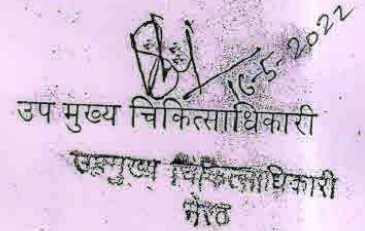 16-5-2022
उप मुख्य चिकित्साधिकारी
उपमुख्य चिकित्साधिकारी
मेरठ